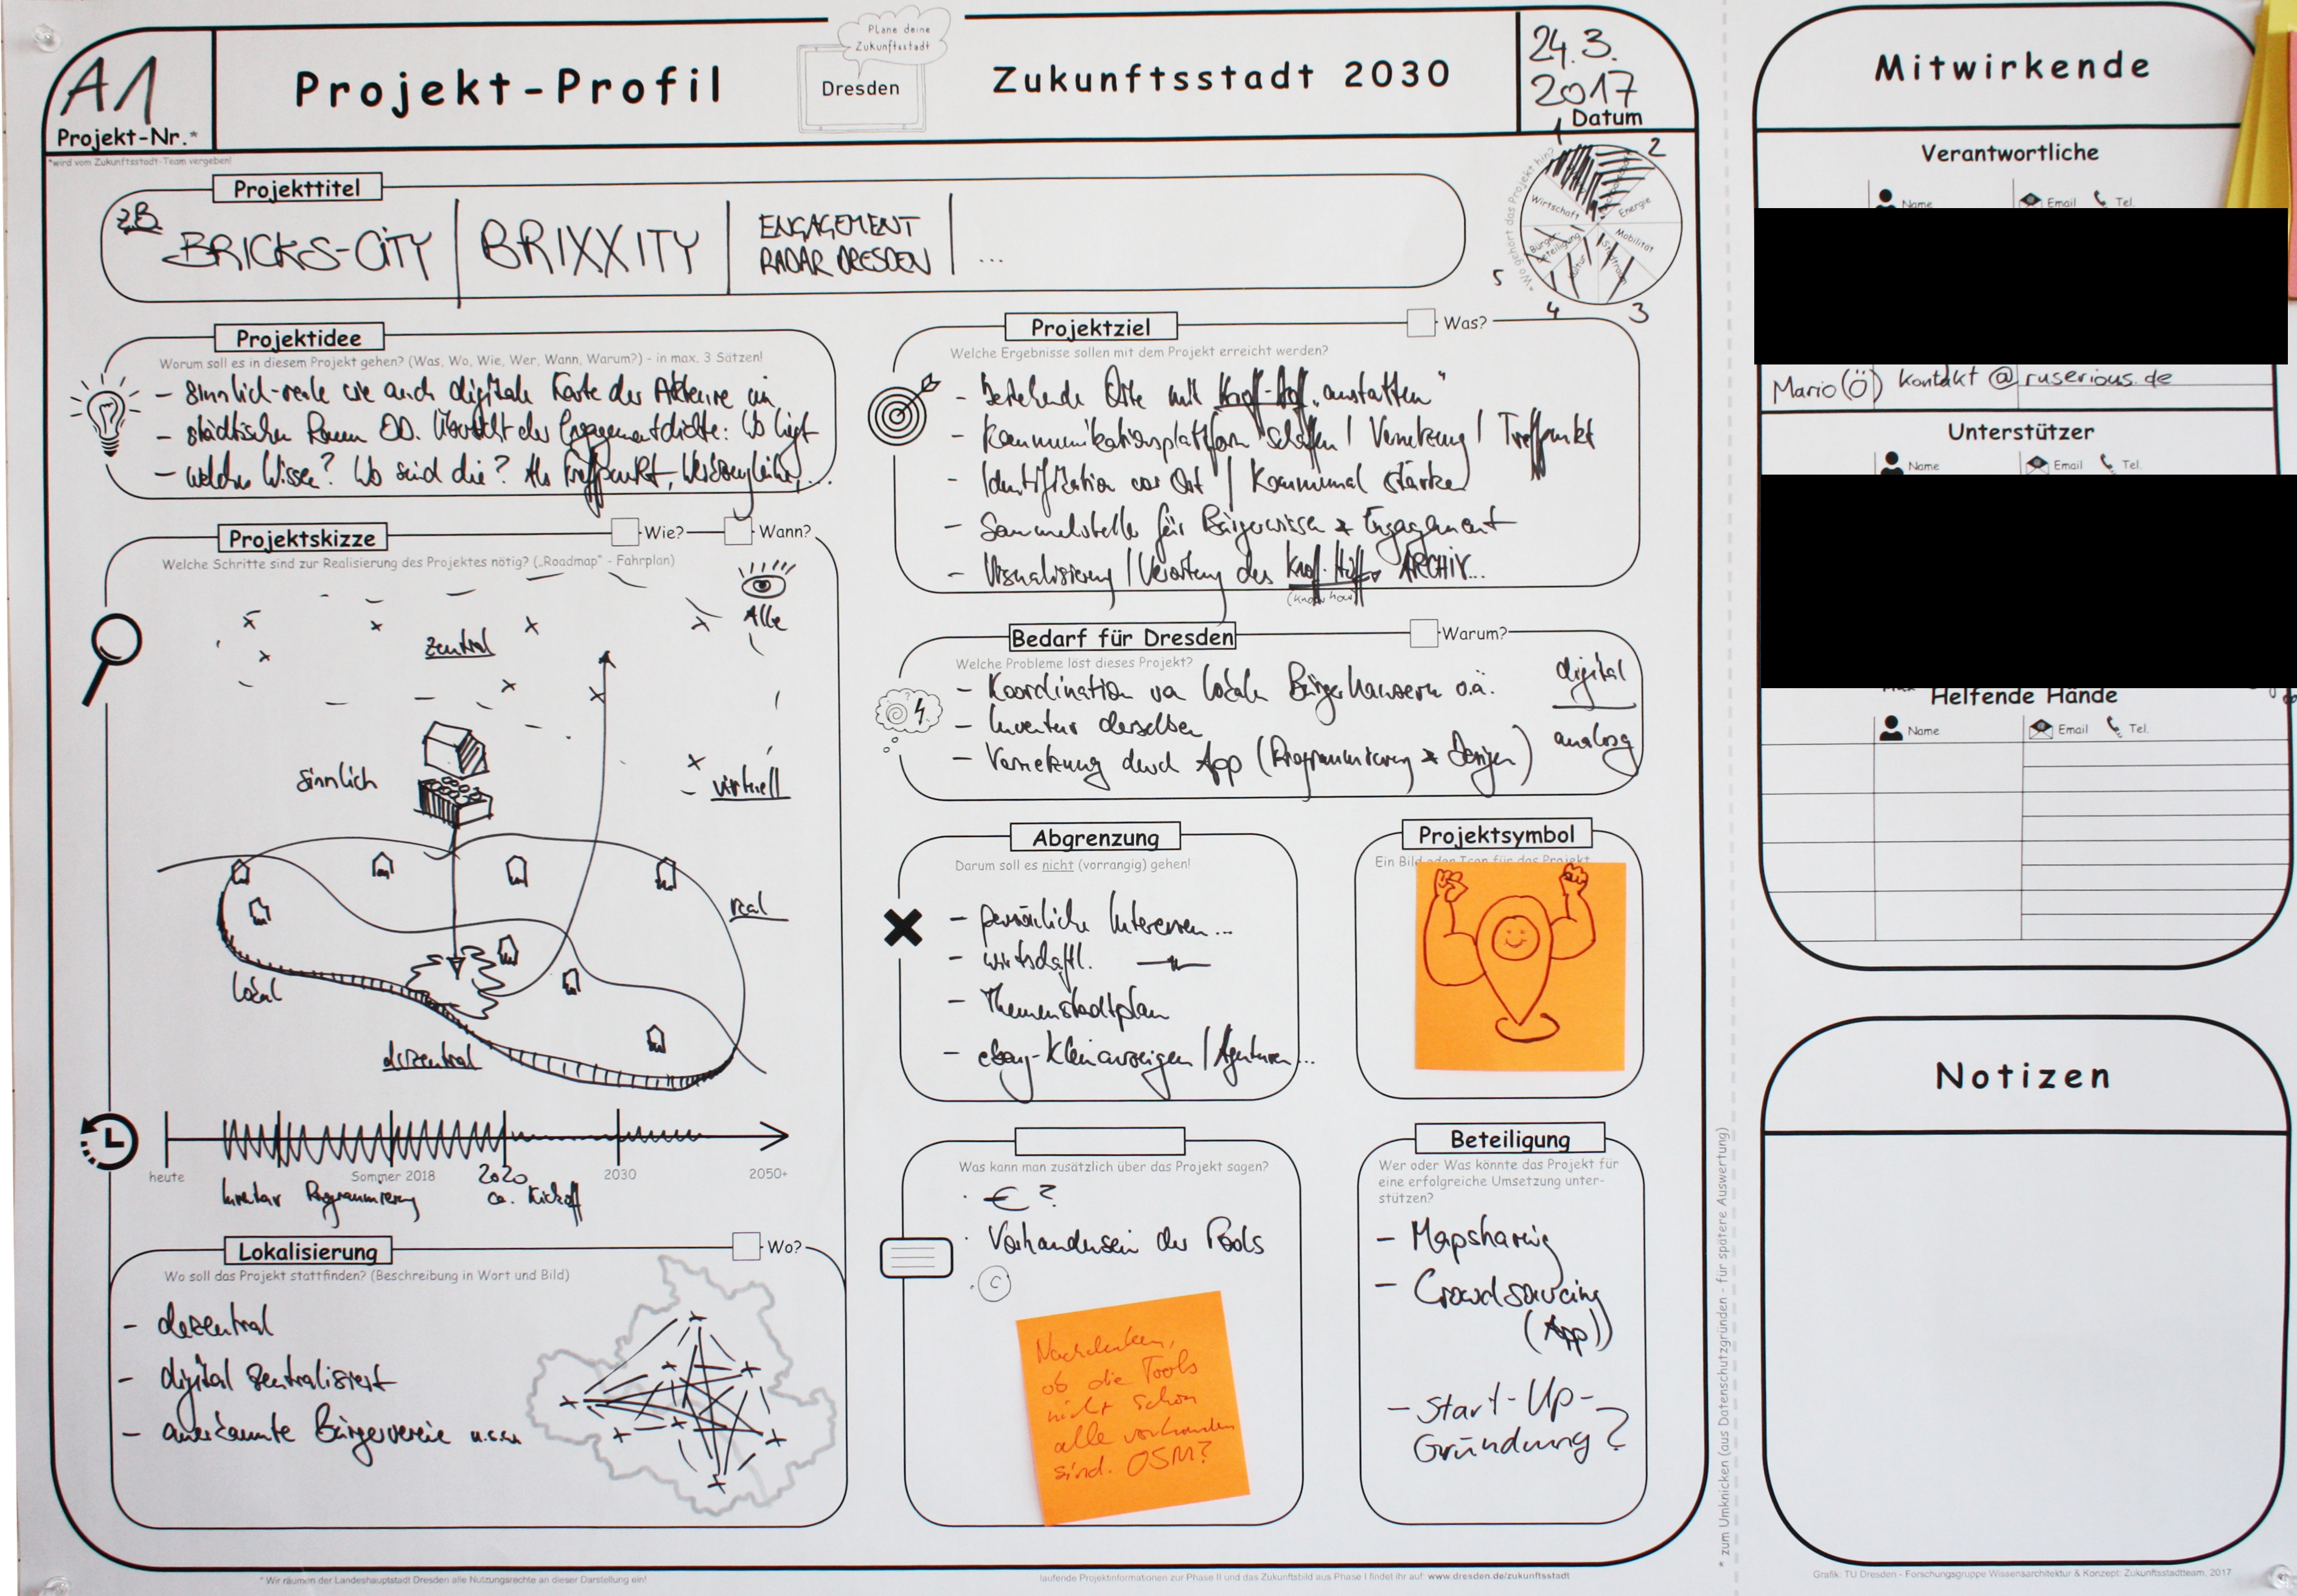 A1
Projekt-Nr.*
*wird vom Zukunftsstadt-Team vergeben!
Projekt-Profil
Plane deine
Zukunftsstadt
Dresden
Zukunftsstadt 2030
24.3.
2017
Datum
Projekttitel
z.B.
BRICKS-CITY | BRIXXITY | ENGAGEMENT
RADAR DRESDEN | ...
*Wo gehört das Projekt hin?
1
2
3
4
5
Wirtschaft
Energie
Mobilität
Bürger-
beteiligung
Kultur
Stadtraum
Projektidee
Worum soll es in diesem Projekt gehen? (Was, Wo, Wie, Wer, Wann, Warum?) - in max. 3 Sätzen!
- Sinnlich-reale wie auch digitale Karte der Akteure im
- städtischen Raum DD. Übersicht der Engagementdichte: Wo liegt
- welches Wissen? Wo sind die? Als Treffpunkt,
Projektskizze
Wie?
Wann?
Welche Schritte sind zur Realisierung des Projektes nötig? („Roadmap" - Fahrplan)
Alle
zentral
sinnlich
virtuell
real
lokal
dezentral
heute
Sommer 2018
2020
2030
2050+
Inventar Programmierung ca. Kickoff
Lokalisierung
Wo?
Wo soll das Projekt stattfinden? (Beschreibung in Wort und Bild)
- dezentral
- digital zentralisiert
- anerkannte Bürgervereine u.s.w.
Projektziel
Was?
Welche Ergebnisse sollen mit dem Projekt erreicht werden?
- bestehende Orte mit „ausstatten"
- Kommunikationsplattform schaffen / Vernetzung / Treffpunkt
- Identifikation vor Ort / Kommunal stärken
- Sammelstelle für Bürgerwissen & Engagement
- Visualisierung / Verortung des ARCHIV...
(know how)
Bedarf für Dresden
Warum?
Welche Probleme löst dieses Projekt?
- Koordination von lokalen Bürgerhäusern o.ä.
- Inventur derselben
- Vernetzung durch App (Programmierung & Design)
digital
analog
Abgrenzung
Darum soll es nicht (vorrangig) gehen!
- persönliche Interessen...
- wirtschaftl. —"—
- Themenstadtplan
- ebay-Kleinanzeigen / Agenturen...
Projektsymbol
Ein Bild oder Icon für das Projekt
Was kann man zusätzlich über das Projekt sagen?
· € ?
· Vorhandensein der Tools
· ©
Nachdenken,
ob die Tools
nicht schon
alle vorhanden
sind. OSM?
Beteiligung
Wer oder Was könnte das Projekt für
eine erfolgreiche Umsetzung unter-
stützen?
- Mapsharing
- Crowdsourcing
(App)
- Start-Up-
Gründung?
* Wir räumen der Landeshauptstadt Dresden alle Nutzungsrechte an dieser Darstellung ein!
laufende Projektinformationen zur Phase II und das Zukunftsbild aus Phase I findet ihr auf: www.dresden.de/zukunftsstadt
* zum Umknicken (aus Datenschutzgründen - für spätere Auswertung)
Mitwirkende
Verantwortliche
Name
Email
Tel.
Mario(Ö) kontakt@ruserious.de
Unterstützer
Name
Email
Tel.
Helfende Hände
Name
Email
Tel.
Notizen
Grafik: TU Dresden - Forschungsgruppe Wissensarchitektur & Konzept: Zukunftsstadtteam, 2017